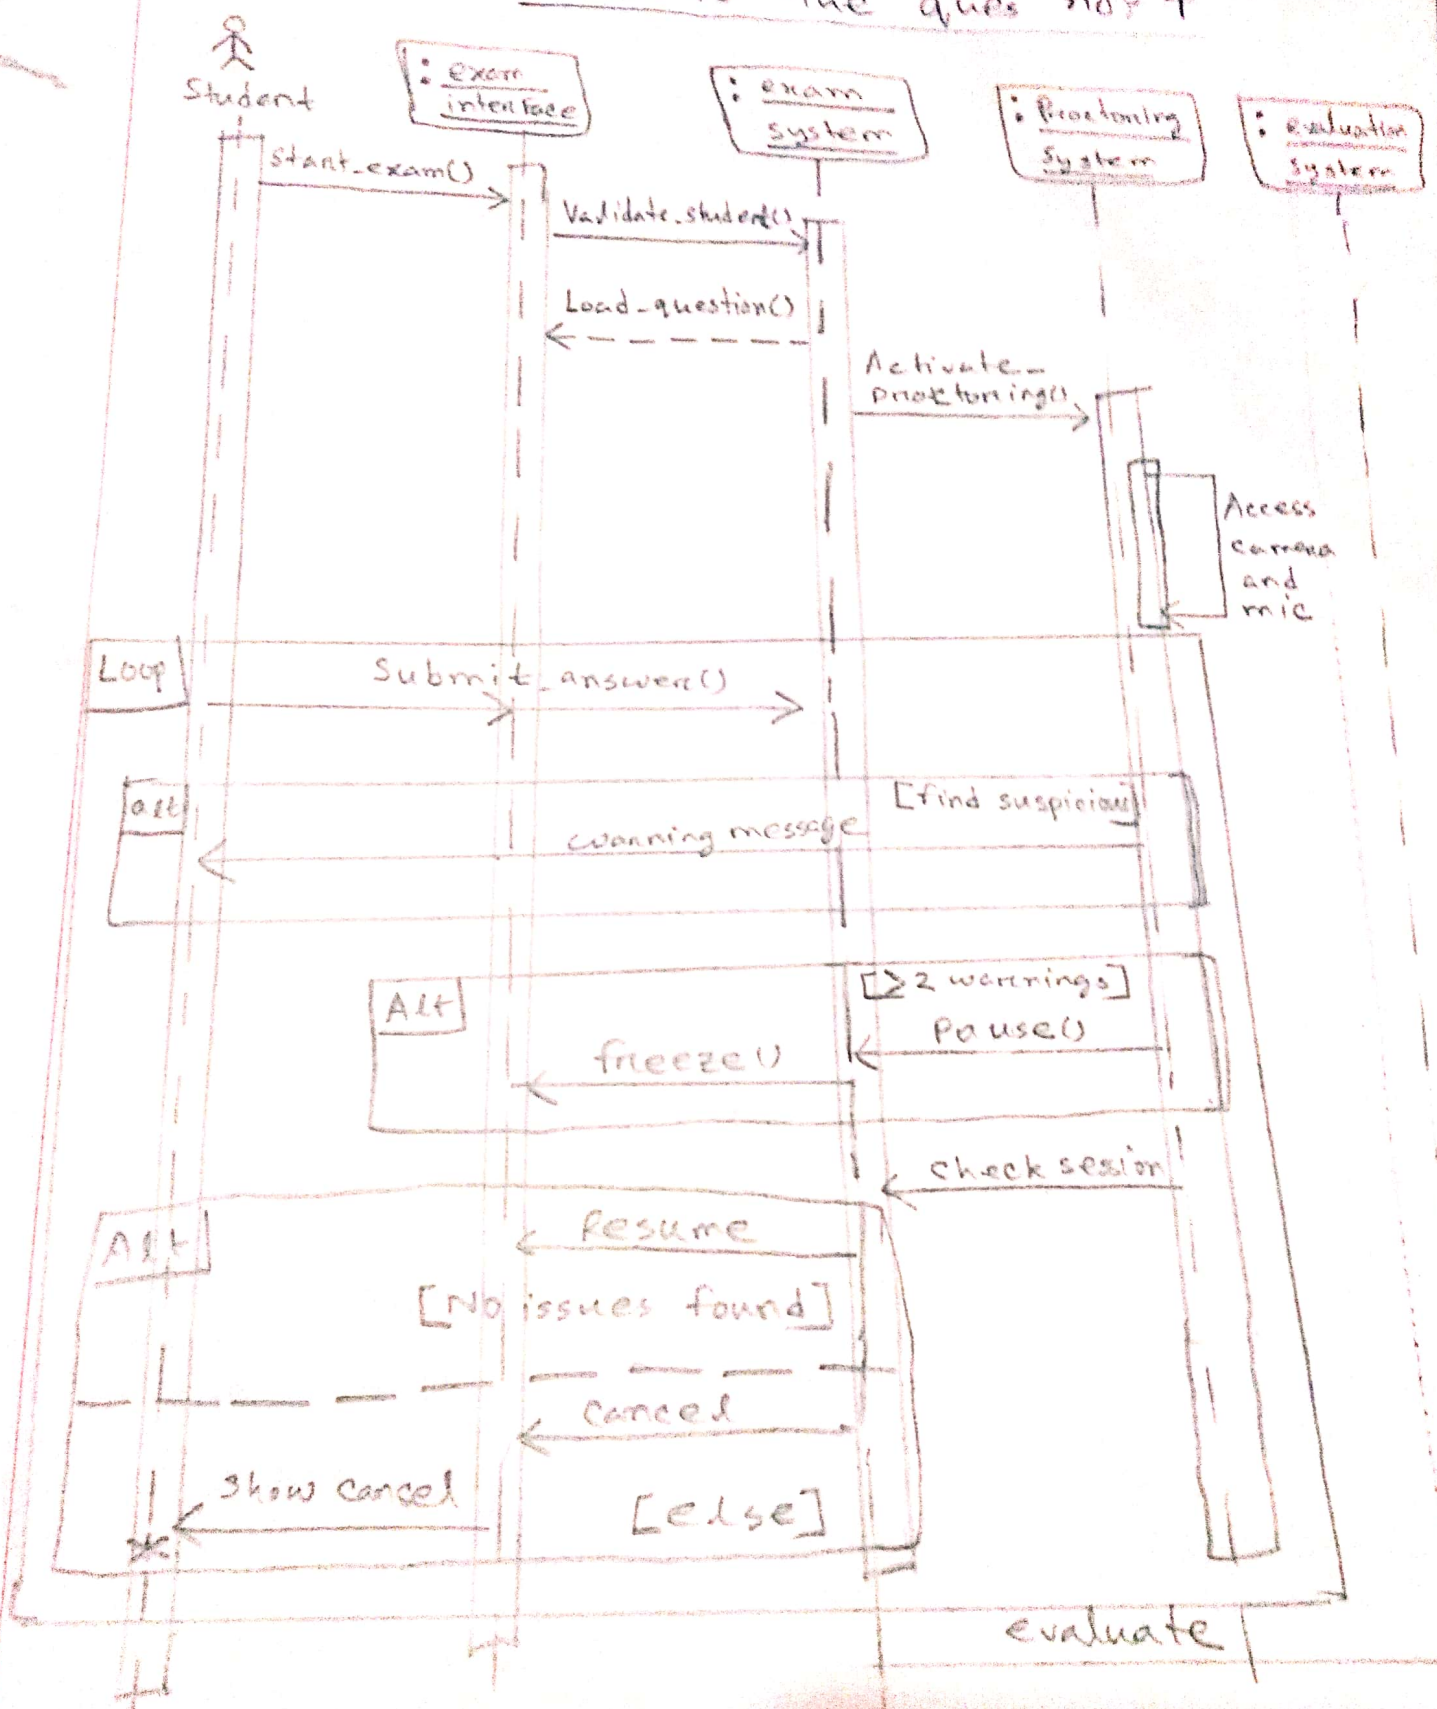 the ques no, 4
Student
: exam
interface
: exam
system
: Proctoring
System
: evaluation
System
Start_exam()
Validate_student()
Load_question()
Activate_
proctoring()
Access
camera
and
mic
Loop
Submit_answer()
alt
[find suspicious]
warning message
Alt
[≥2 warnings]
Pause()
freeze()
check sesion
Alt
Resume
[No issues found]
cancel
Show cancel
[else]
evaluate